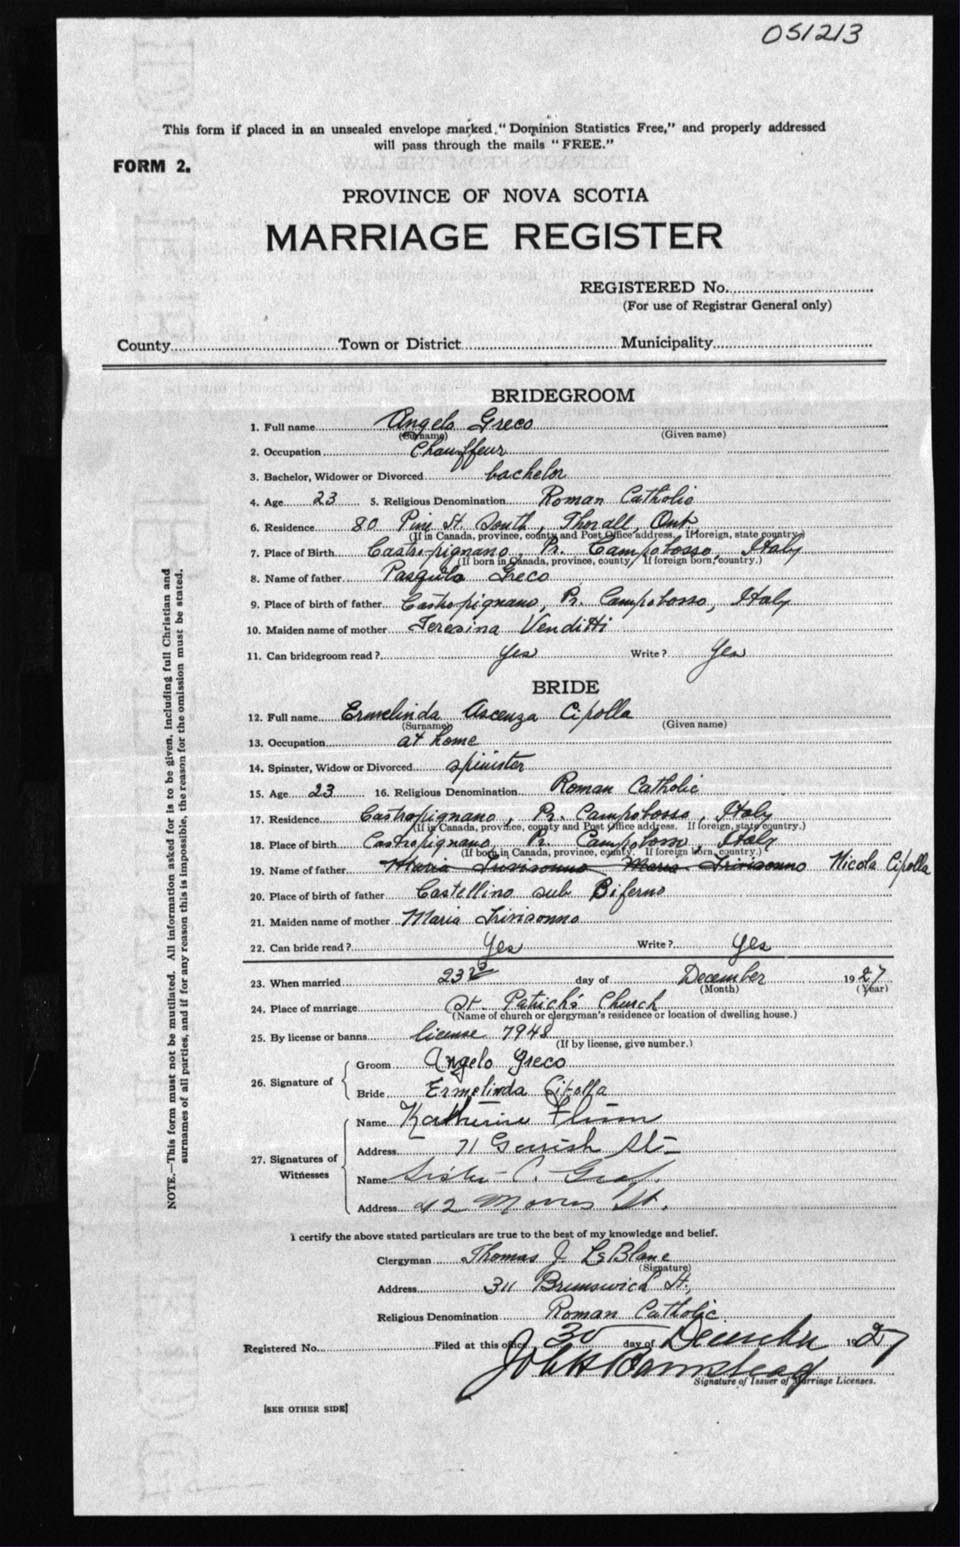 051213
This form if placed in an unsealed envelope marked "Dominion Statistics Free," and properly addressed
will pass through the mails "FREE."
FORM 2.
PROVINCE OF NOVA SCOTIA
MARRIAGE REGISTER
REGISTERED No.
(For use of Registrar General only)
County Town or District Municipality
BRIDEGROOM
1. Full name Angelo Greco
(Surname) (Given name)
2. Occupation Chauffeur
3. Bachelor, Widower or Divorced bachelor
4. Age 23 5. Religious Denomination Roman Catholic
6. Residence 80 Pine St. South, Ont.
(If in Canada, province, county and Post Office address. If foreign, state country.)
7. Place of Birth Castropignano, Pr. Campobosso, Italy
(If born in Canada, province, county. If foreign born, country.)
8. Name of father Greco
9. Place of birth of father Castropignano, Pr. Campobosso, Italy
10. Maiden name of mother Teresina Venditti
11. Can bridegroom read? Yes Write? Yes
BRIDE
12. Full name Ermelinda Ascenza Cipolla
(Surname) (Given name)
13. Occupation at home
14. Spinster, Widow or Divorced spinster
15. Age 23 16. Religious Denomination Roman Catholic
17. Residence Castropignano, Pr. Campobosso, Italy
(If in Canada, province, county and Post Office address. If foreign, state country.)
18. Place of birth Castropignano, Pr. Campobosso, Italy
(If born in Canada, province, county. If foreign born, country.)
19. Name of father Maria Trivisonno Maria Trivisonno Nicola Cipolla
20. Place of birth of father Castellino sub Biferno
21. Maiden name of mother Maria Trivisonno
22. Can bride read? Yes Write? Yes
23. When married 23rd day of December 1927
(Month) (Year)
24. Place of marriage St. Patrick's Church
(Name of church or clergyman's residence or location of dwelling house.)
25. By license or banns license 7948
(If by license, give number.)
26. Signature of Groom Angelo Greco
Bride Ermelinda Cipolla
27. Signatures of Witnesses
Name Katherine
Address 71 Gerrish St.
Name Sister C.
Address 42 Morris St.
I certify the above stated particulars are true to the best of my knowledge and belief.
Clergyman Thomas J. LeBlanc
(Signature)
Address 311 Brunswick St.
Religious Denomination Roman Catholic
Registered No. Filed at this office 30 day of December 1927
Signature of Issuer of Marriage Licenses.
[SEE OTHER SIDE]
NOTE.—This form must not be mutilated. All information asked for is to be given, including full Christian and
surnames of all parties, and if for any reason this is impossible, the reason for the omission must be stated.